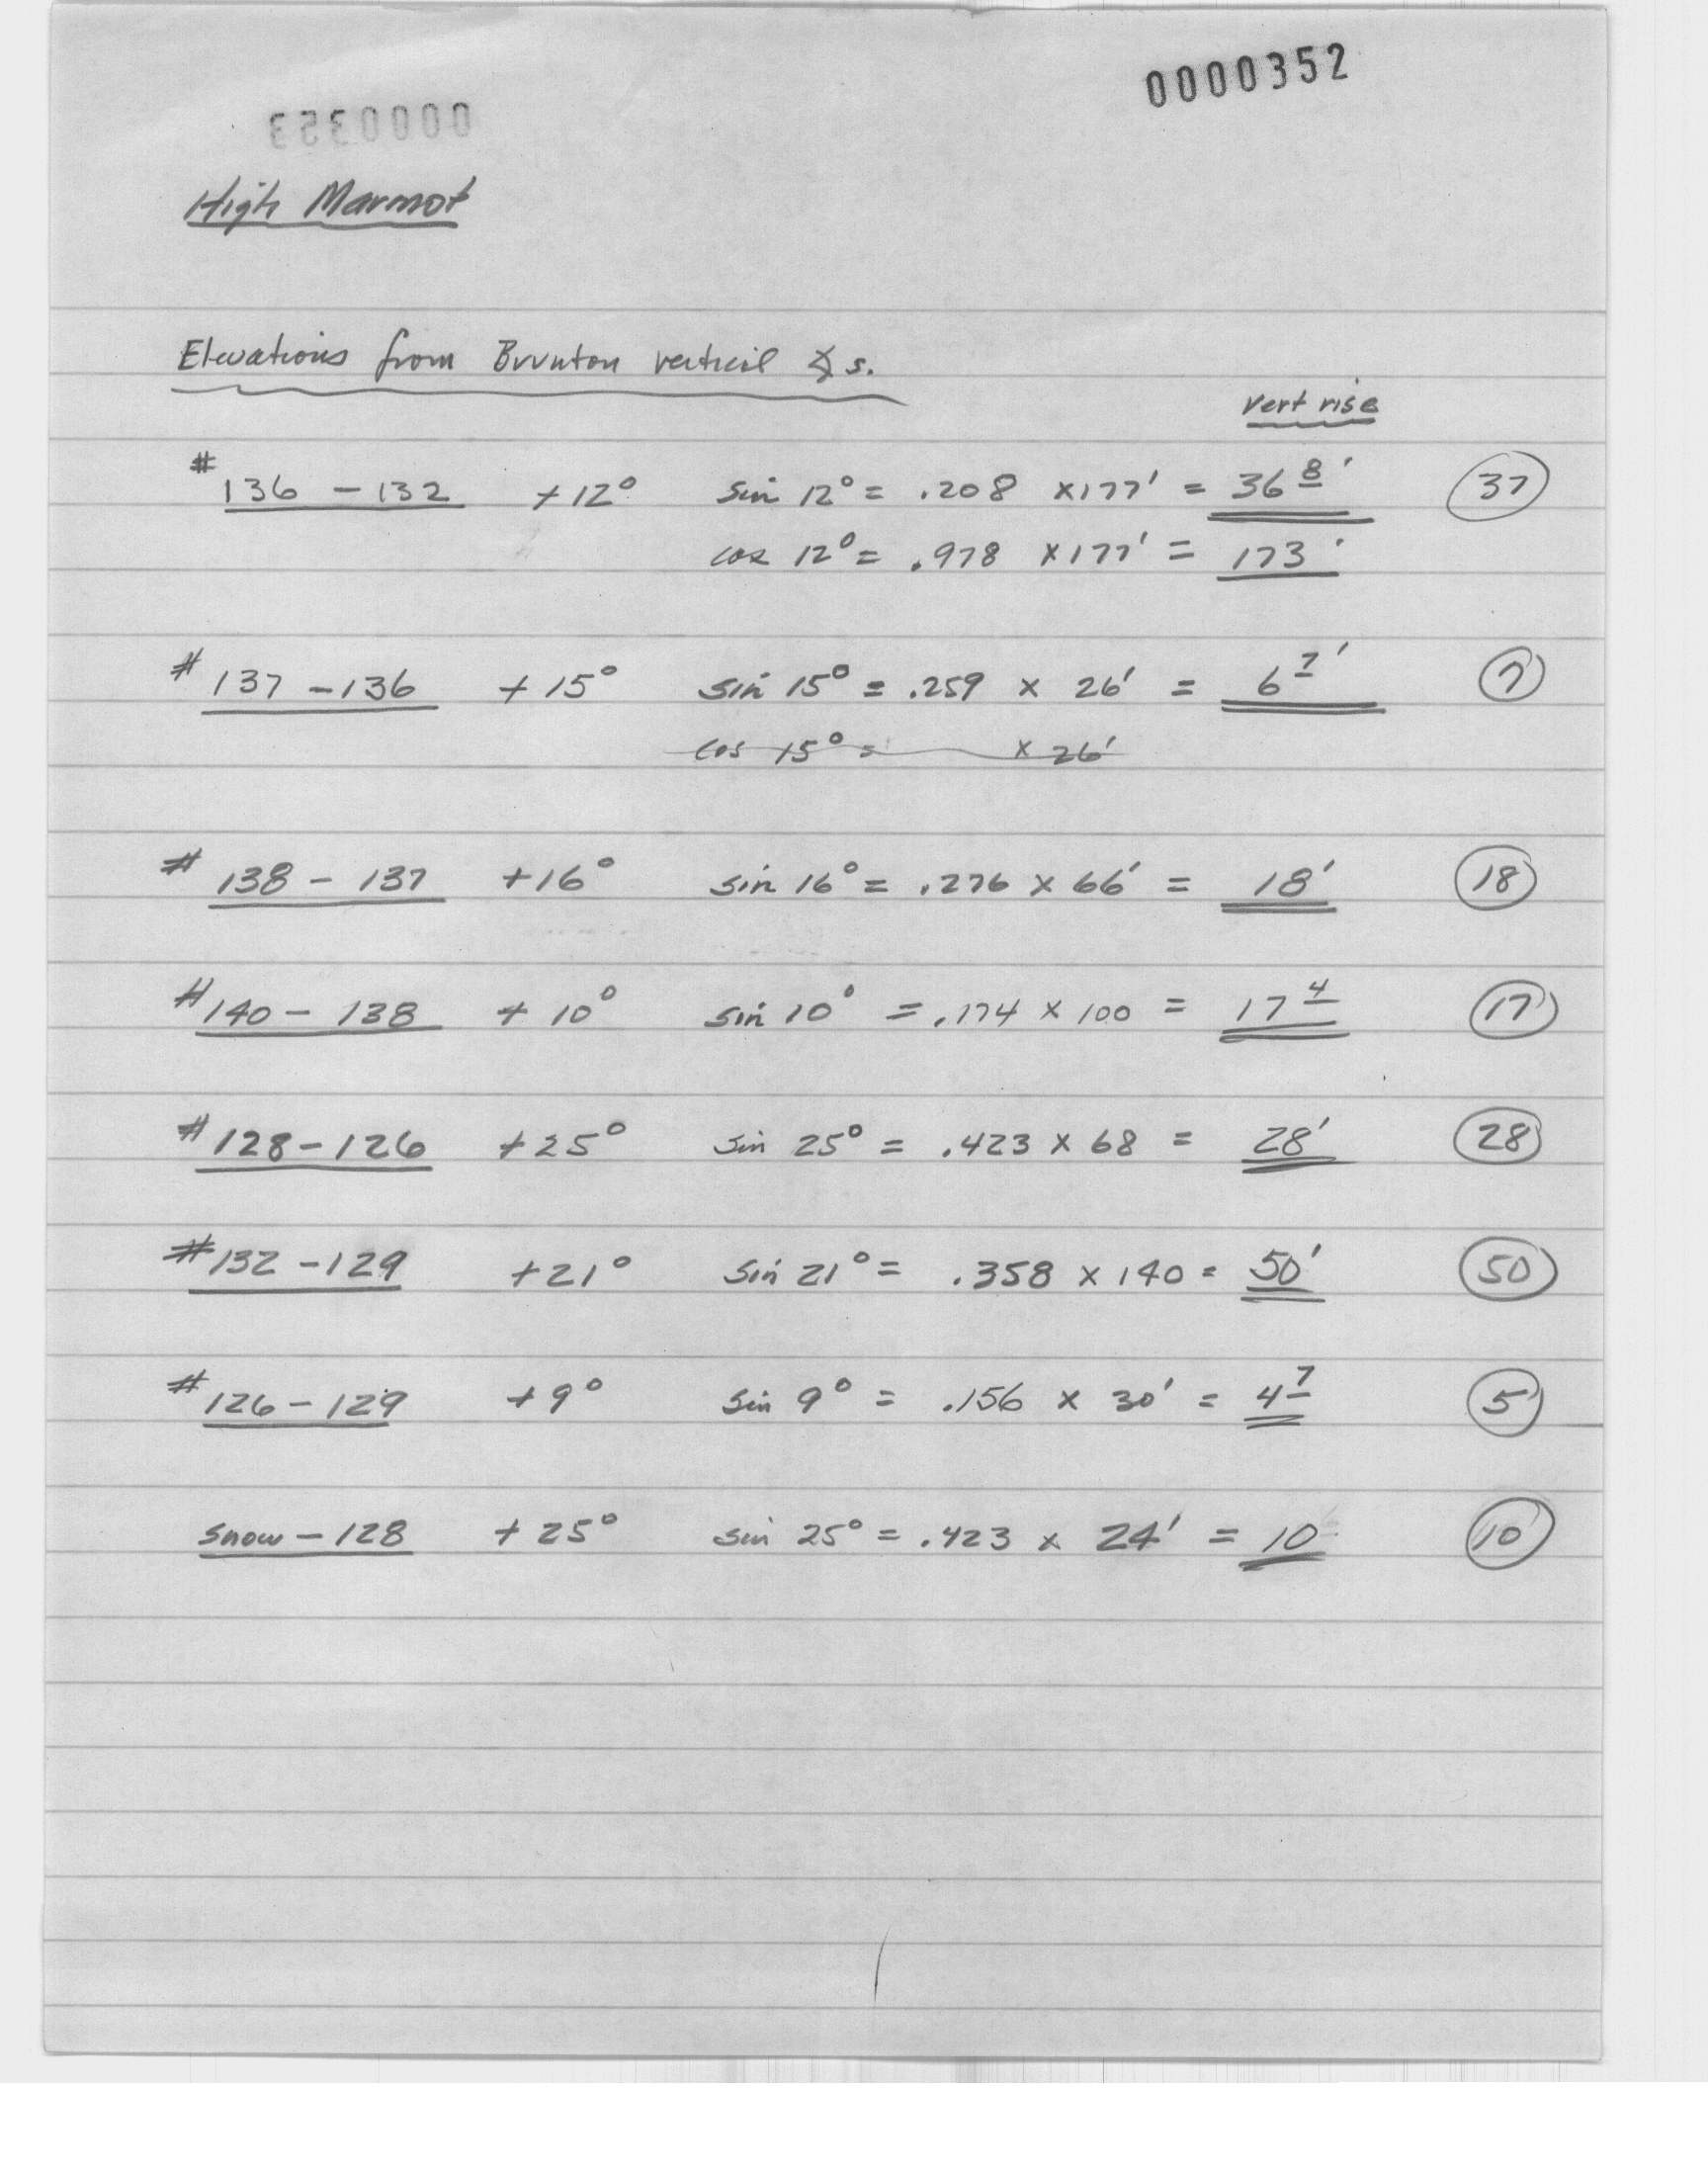 0000352
0000353
High Marmot
Elevations from Brunton vertical ∡s.
Vert rise
# 136 - 132 +12° sin 12° = .208 x177' = 36 8' 37
cos 12° = .978 x177' = 173'
# 137 - 136 +15° sin 15° = .259 x 26' = 6 7' 7
cos 15° = x 26'
# 138 - 137 +16° sin 16° = .276 x 66' = 18' 18
# 140 - 138 +10° sin 10° = .174 x 100 = 17 4 17
# 128 - 126 +25° sin 25° = .423 x 68 = 28' 28
# 132 - 129 +21° sin 21° = .358 x 140 = 50' 50
# 126 - 129 +9° sin 9° = .156 x 30' = 4 7 5
snow - 128 +25° sin 25° = .423 x 24' = 10 10